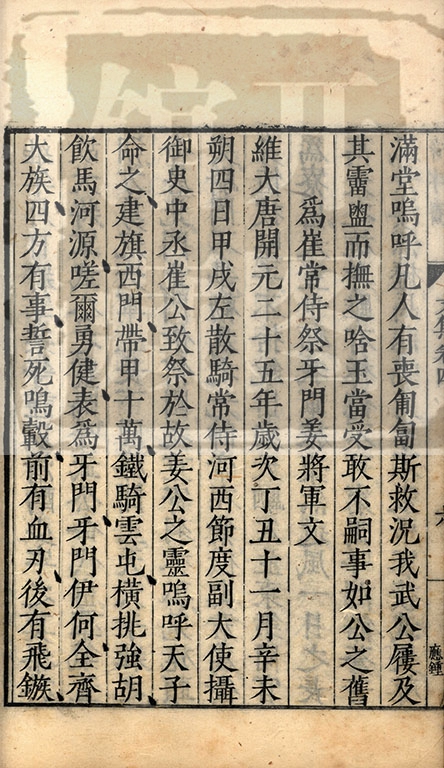 滿堂嗚呼凡人有喪匍匐斯救況我武公屢及
其霤盥而撫之啥玉當受敢不嗣事如公之舊
爲崔常侍祭牙門姜將軍文
維大唐開元二十五年歲次丁丑十一月辛未
朔四日甲戌左散騎常侍河西節度副大使攝
御史中丞崔公致祭於故姜公之靈嗚呼天子
命之建旗西門帶甲十萬鐵騎雲屯橫挑強胡
飲馬河源嗟爾勇健表爲牙門牙門伊何全齊
大族四方有事誓死鳴轂前有血刃後有飛鏃